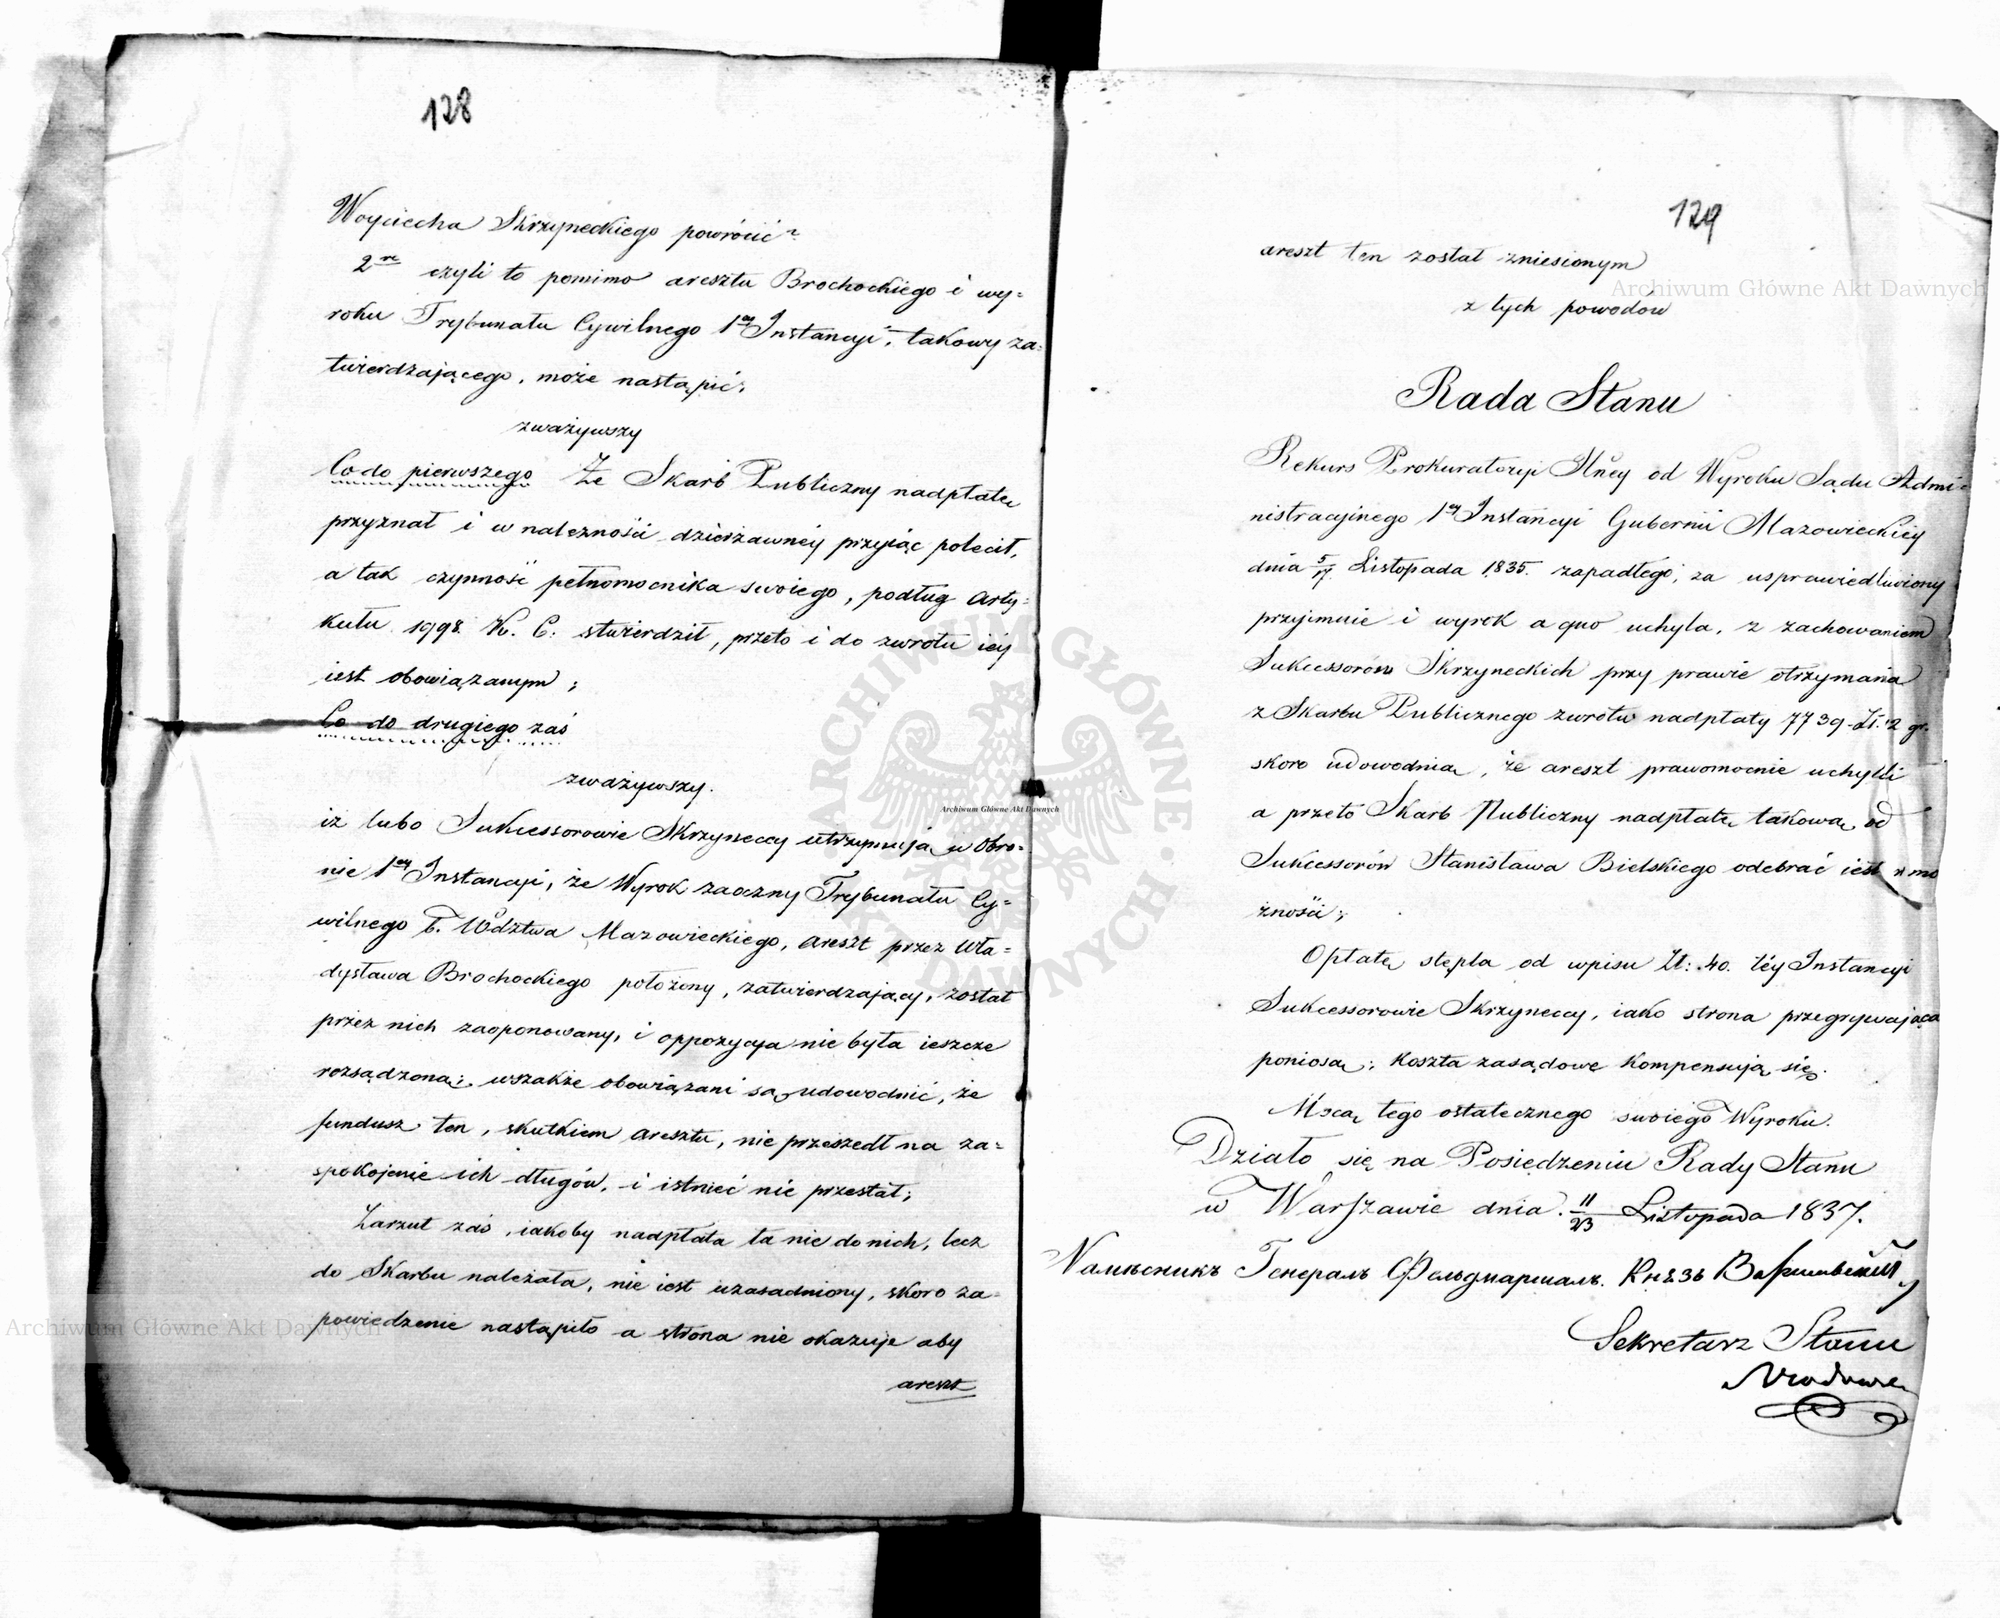 128
Woyciecha Skrzyneckiego powrócić?
2re czyli to pomimo aresztu Brochockiego i wy=
roku Trybunału Cywilnego 1ey Instancyi, takowy za=
twierdzającego, może nastąpić;
zważywszy
Co do pierwszego Że Skarb Publiczny nadpłatę
przyznał i w należności dzierżawnéy przyiąć polecił,
a tak czynność pełnomocnika swoiego, podług Arty=
kułu 1998. K. C: stwierdził, przeto i do zwrotu iéy
iest obowiązanym;
Co do drugiego zaś
zważywszy.
iż lubo Sukcessorowie Skrzyneccy utrzymuią w Obro=
nie 1ey Instancyi, że Wyrok zaoczny Trybunału Cy=
wilnego b. Wdztwa Mazowieckiego, areszt przez Wła=
dysława Brochockiego położony, zatwierdzający, został
przez nich zaoponowany, i oppozycya nie była ieszcze
rozsądzoną; wszakże obowiązani są udowodnić, że
fundusz ten, skutkiem aresztu, nie przeszedł na za=
spokojenie ich długów, i istnieć nie przestał;
Zarzut zaś, iakoby nadpłata ta nie do nich, lecz
do Skarbu należała, nie iest uzasadniony, skoro za=
powiedzenie nastąpiło a strona nie okazuje aby
areszt
129
areszt ten został zniesionym
z tych powodów
Rada Stanu
Rekurs Prokuratoryi Jlney od Wyroku Sądu Admi=
nistracyjnego 1ey Instancyi Gubernii Mazowieckiéy
dnia 5/17. Listopada 1835. zapadłego, za usprawiedliwiony
przyjmuie i wyrok a quo uchyla, z zachowaniem
Sukcessorów Skrzyneckich przy prawie otrzymania
z Skarbu Publicznego zwrotu nadpłaty 7739. Zł. 2 gr.
skoro udowodnią, że areszt prawomocnie uchylili
a przeto Skarb Publiczny nadpłatę takową od
Sukcessorów Stanisława Bielskiego odebrać iest w mo
żności;
Opłatę stępla od wpisu Zł: 40. téy Instancyi
Sukcessorowie Skrzyneccy, iako strona przegrywająca
poniosą; koszta zasądowe kompensują się.
Mocą tego ostatecznego swoiego Wyroku.
Działo się na Posiedzeniu Rady Stanu
w Warszawie dnia 11/23 Listopada 1837.
Намѣсникъ Генералъ Фельдмаршалъ. Князь Варшавскій
Sekretarz Stanu
Archiwum Główne Akt Dawnych
Archiwum Główne Akt Dawnych
Archiwum Główne Akt Dawnych
ARCHIWUM GŁÓWNE AKT DAWNYCH